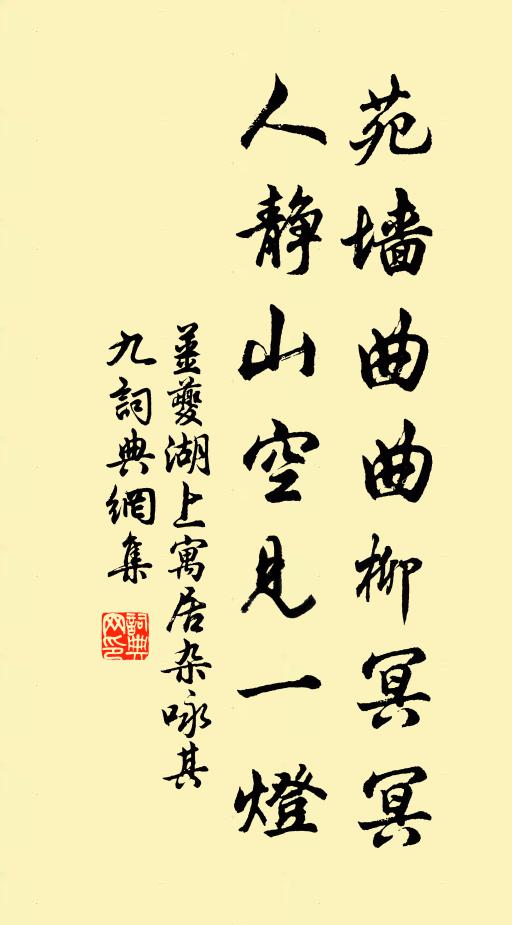 苑墙曲曲柳冥冥
人静山空见一燈
姜夔湖上寓居杂咏其
九詞典網集
詞典
网印